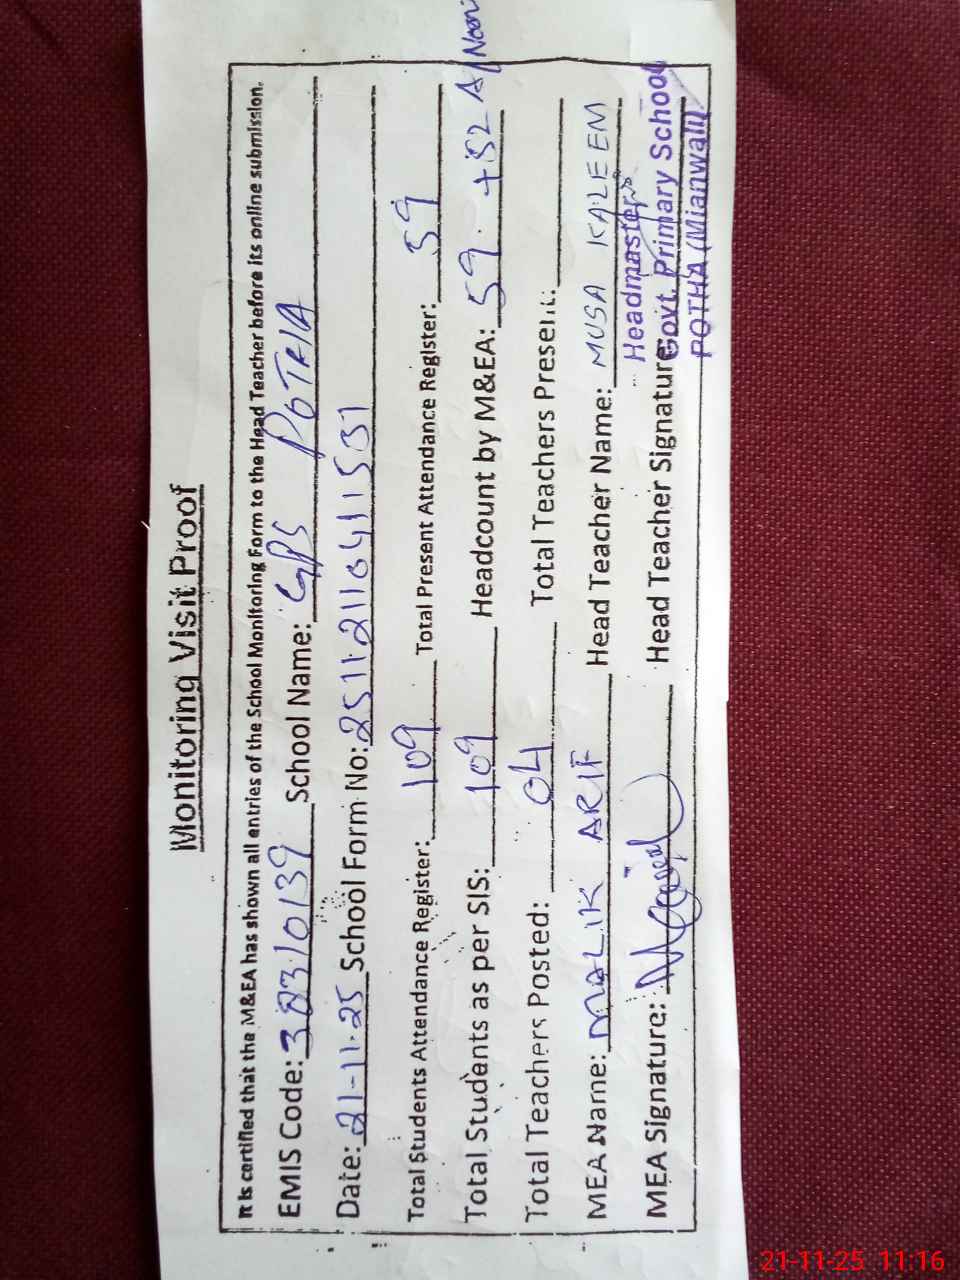 Monitoring Visit Proof
It is certified that the M&EA has shown all entries of the School Monitoring Form to the Head Teacher before its online submission.
EMIS Code: 38310139 School Name: GPS POTHA
Date: 21-11-25 School Form No: 25112110411531
Total Students Attendance Register: 109 Total Present Attendance Register: 59
Total Students as per SIS: 109 Headcount by M&EA: 59 + 52 A/Noon
Total Teachers Posted: 04 Total Teachers Present:
MEA Name: MALIK ARIF Head Teacher Name: MUSA KALEEM
MEA Signature: Head Teacher Signature:
Headmaster
Govt. Primary School
POTHA (Mianwali)
21-11-25 11:16